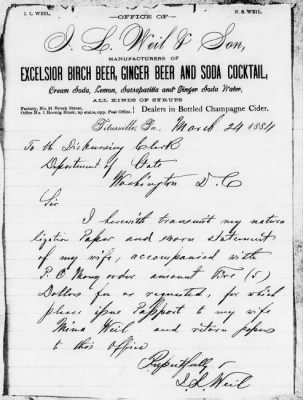 I. L. WEIL,
N. S. WEIL.
—OFFICE OF—
I. L. Weil & Son,
MANUFACTURERS OF
EXCELSIOR BIRCH BEER, GINGER BEER AND SODA COCKTAIL,
Cream Soda, Lemon, Sarsaparilla and Ginger Soda Water,
ALL KINDS OF SYRUPS
Factory, No. 21 Brook Street,
Office No. 1 Street, up stairs, opp. Post Office.
Dealers in Bottled Champagne Cider.
Titusville, Pa., March 24 1884
To the Disbursing Clerk
Department of State
Washington D. C
Sir
I herewith transmit my natura
lization Paper and sworn statement
of my wife, accompanied with
P. O Mony order amount Five (5)
Dollars fee as requested, for which
please issue Passport to my wife
Mina Weil and return papers
to this office
Respectfully
I. L Weil